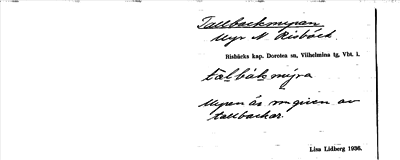 Tallbackmyran
Myr N Risbäck.
Risbäcks kap. Dorotea sn, Vilhelmina tg, Vbt. l.
talbákmýra
Myren är omgiven av
tallbackar.
Lisa Lidberg 1936.